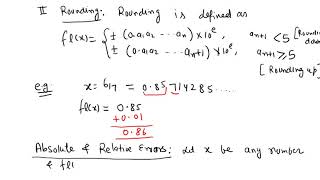 II Rounding: Rounding is defined as
fl(x) = { ± (0.a₁a₂ ... aₙ) × 10^e , aₙ₊₁ < 5 [Rounding down]
± (0.a₁a₂ ... aₙ₊₁) × 10^e , aₙ₊₁ ≥ 5 [Rounding up]
e.g x = 6/7 = 0.85714285.....
fl(x) = 0.85
+0.01
0.86
Absolute & Relative Errors: Let x be any number
& fl(